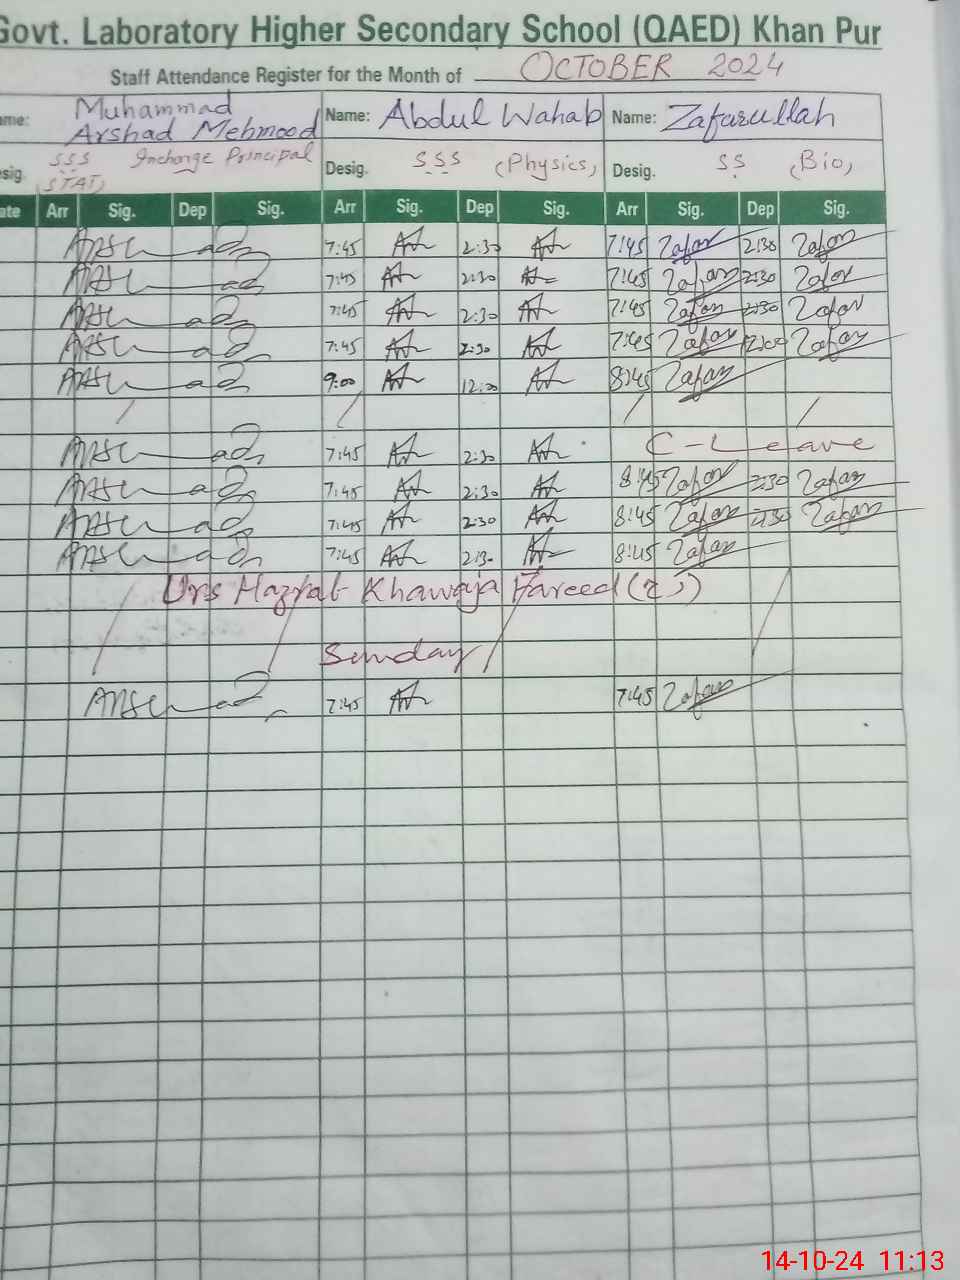 Govt. Laboratory Higher Secondary School (QAED) Khan Pur
Staff Attendance Register for the Month of OCTOBER 2024
ame: Muhammad Arshad Mehmood Name: Abdul Wahab Name: Zafarullah
sig. SSS (STAT) Incharge Principal Desig. SSS (Physics) Desig. SS (Bio)
ate Arr Sig. Dep Sig. Arr Sig. Dep Sig. Arr Sig. Dep Sig.
7:45 2:30 7:45 Zafar 2:30 Zafar
7:45 2:30 7:45 Zafar 2:30 Zafar
7:45 2:30 7:45 Zafar 2:30 Zafar
7:45 2:30 7:45 Zafar 12:00 Zafar
9:00 12:00 8:45 Zafar
7:45 2:30 C-Leave
7:45 2:30 8:45 Zafar 2:30 Zafar
7:45 2:30 8:45 Zafar 2:30 Zafar
7:45 2:30 8:45 Zafar
Urs Hazrat Khawaja Fareed
Sunday
7:45 7:45 Zafar
14-10-24 11:13